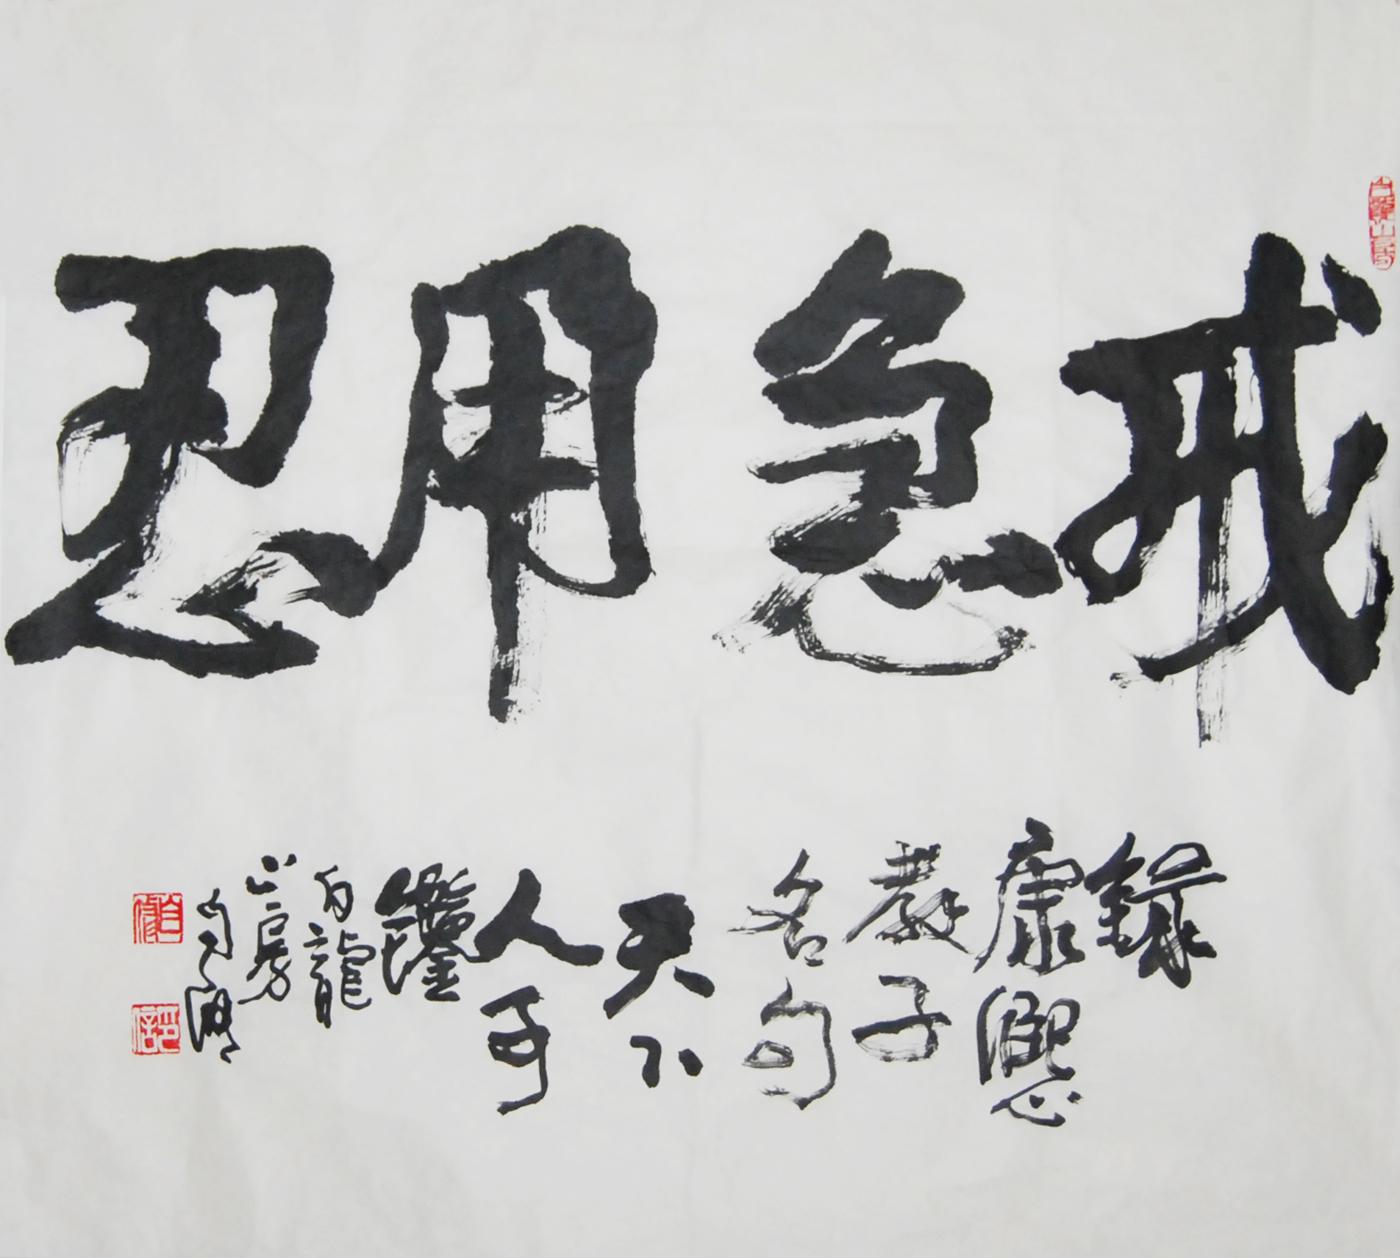 戒急用忍
錄
康熙
教子
名句
天下
人可
鑑
白龍
山房